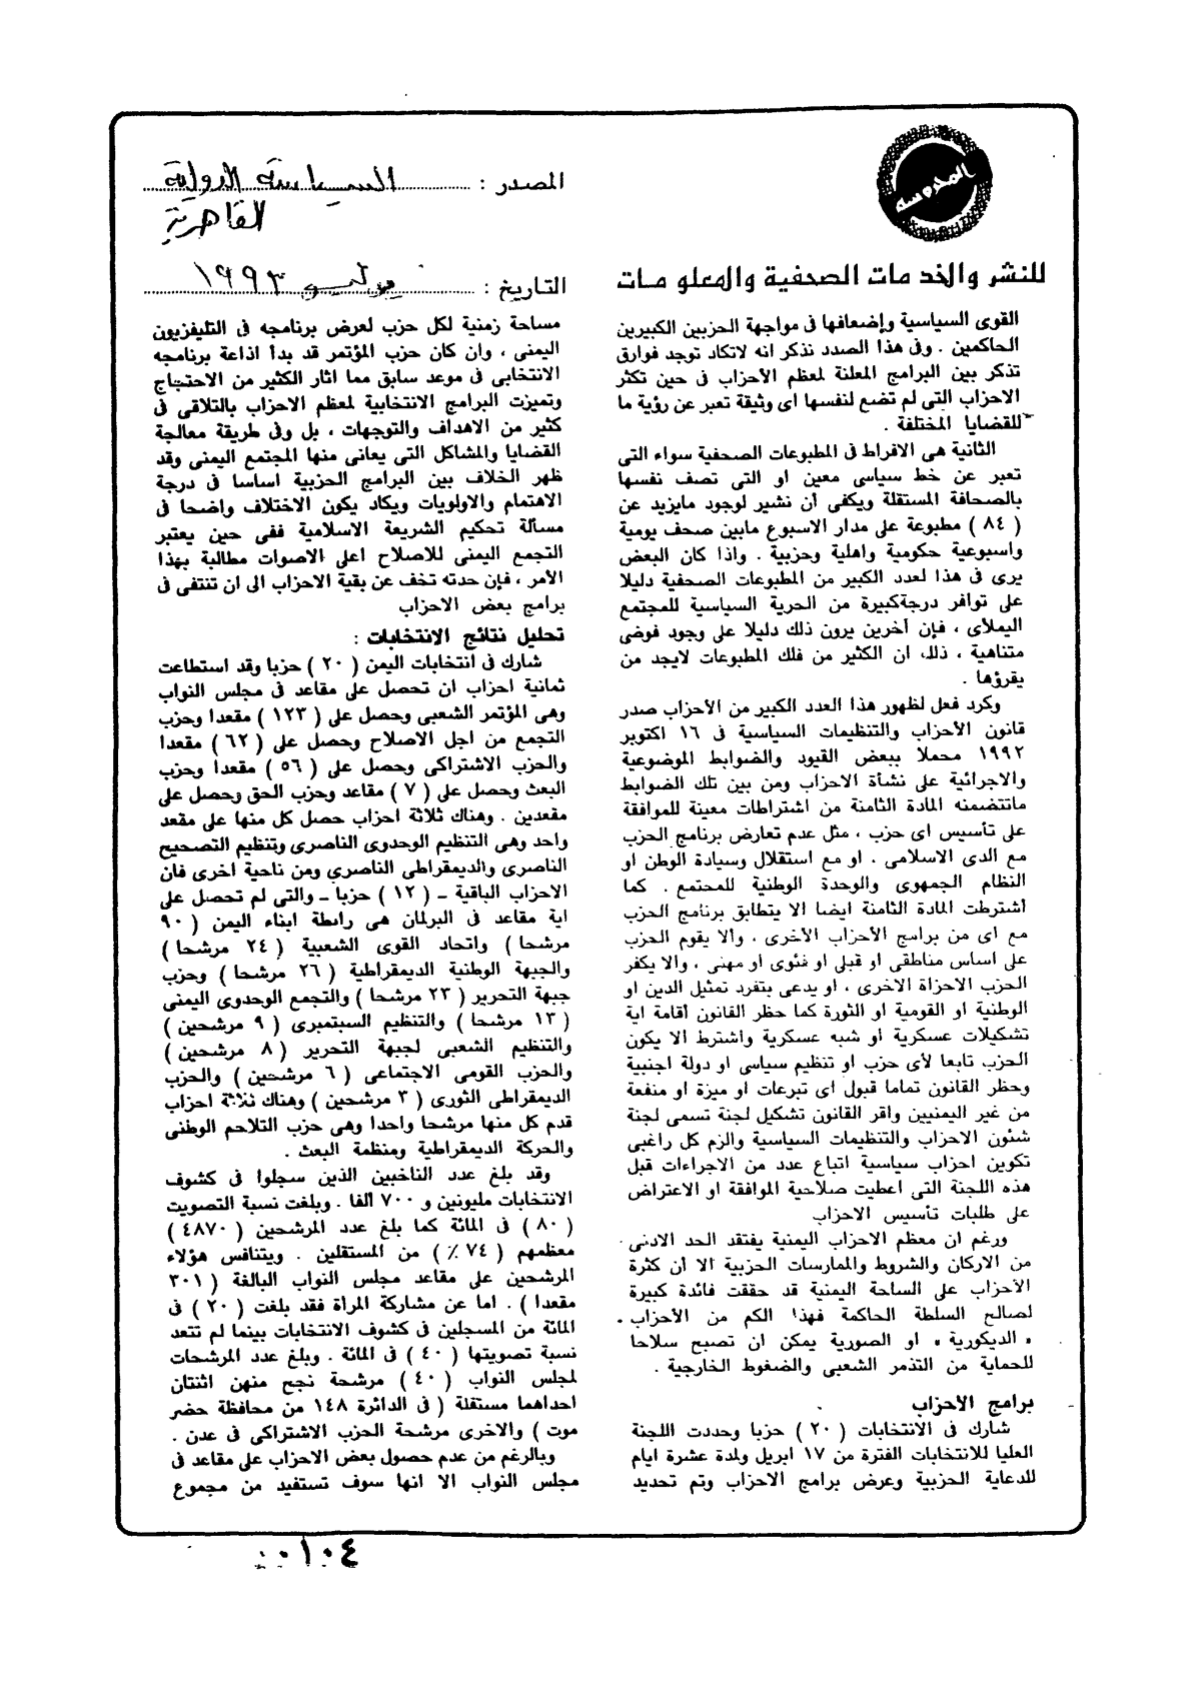 المحروسه
للنشر والخدمات الصحفية والمعلومات
المصدر : السياسة الدولية
القاهرية
التاريخ : يوليو ١٩٩٣
القوى السياسية وإضعافها فى مواجهة الحزبين الكبيرين
الحاكمين . وفى هذا الصدد نذكر انه لاتكاد توجد فوارق
تذكر بين البرامج المعلنة لمعظم الأحزاب فى حين تكثر
الاحزاب التى لم تضع لنفسها اى وثيقة تعبر عن رؤية ما
للقضايا المختلفة .
الثانية هى الافراط فى المطبوعات الصحفية سواء التى
تعبر عن خط سياسى معين او التى تصف نفسها
بالصحافة المستقلة ويكفى أن نشير لوجود مايزيد عن
( ٨٤ ) مطبوعة على مدار الاسبوع مابين صحف يومية
واسبوعية حكومية واهلية وحزبية . واذا كان البعض
يرى فى هذا لعدد الكبير من المطبوعات الصحفية دليلا
على توافر درجةكبيرة من الحرية السياسية للمجتمع
اليملأى ، فإن آخرين يرون ذلك دليلا على وجود فوضى
متناهية ، ذلك ان الكثير من فلك المطبوعات لايجد من
يقرؤها .
وكرد فعل لظهور هذا العدد الكبير من الأحزاب صدر
قانون الأحزاب والتنظيمات السياسية فى ١٦ اكتوبر
١٩٩٢ محملا ببعض القيود والضوابط الموضوعية
والاجرائية على نشأة الاحزاب ومن بين تلك الضوابط
ماتتضمنه المادة الثامنة من اشتراطات معينة للموافقة
على تأسيس اى حزب ، مثل عدم تعارض برنامج الحزب
مع الدى الاسلامى . او مع استقلال وسيادة الوطن او
النظام الجمهوى والوحدة الوطنية للمحتمع . كما
اشترطت المادة الثامنة ايضا الا يتطابق برنامج الحزب
مع اى من برامج الأحزاب الأخرى ، وألا يقوم الحزب
على اساس مناطقى او قبلى او فئوى او مهنى ، والا يكفر
الحزب الاحزاة الاخرى ، او يدعى بتفرد تمثيل الدين او
الوطنية او القومية او الثورة كما حظر القانون أقامة اية
تشكيلات عسكرية او شبه عسكرية واشترط الا يكون
الحزب تابعا لأى حزب او تنظيم سياسى او دولة اجنبية
وحظر القانون تماما قبول اى تبرعات او ميزة او منفعة
من غير اليمنيين واقر القانون تشكيل لجنة تسمى لجنة
شئون الاحزاب والتنظيمات السياسية والزم كل راغبى
تكوين احزاب سياسية اتباع عدد من الاجراءات قبل
هذه اللجنة التى اعطيت صلاحية الموافقة او الاعتراض
على طلبات تأسيس الاحزاب
ورغم ان معظم الاحزاب اليمنية يفتقد الحد الادنى
من الاركان والشروط والممارسات الحزبية الا أن كثرة
الأحزاب على الساحة اليمنية قد حققت فائدة كبيرة
لصالح السلطة الحاكمة فهذا الكم من الأحزاب
« الديكورية » او الصورية يمكن ان تصبح سلاحا
للحماية من التذمر الشعبى والضغوط الخارجية .
برامج الاحزاب
شارك فى الانتخابات ( ٢٠ ) حزبا وحددت اللجنة
العليا للانتخابات الفترة من ١٧ ابريل ولمدة عشرة ايام
للدعاية الحزبية وعرض برامج الاحزاب وتم تحديد
مساحة زمنية لكل حزب لعرض برنامجه فى التليفزيون
اليمنى ، وان كان حزب المؤتمر قد بدأ اذاعة برنامجه
الانتخابى فى موعد سابق مما اثار الكثير من الاحتجاج
وتميزت البرامج الانتخابية لمعظم الاحزاب بالتلاقى فى
كثير من الاهداف والتوجهات ، بل وفى طريقة معالجة
القضايا والمشاكل التى يعانى منها المجتمع اليمنى وقد
ظهر الخلاف بين البرامج الحزبية اساسا فى درجة
الاهتمام والاولويات ويكاد يكون الاختلاف واضحا فى
مسألة تحكيم الشريعة الاسلامية ففى حين يعتبر
التجمع اليمنى للاصلاح اعلى الاصوات مطالبة بهذا
الأمر ، فإن حدته تخف عن بقية الاحزاب الى ان تنتفى فى
برامج بعض الاحزاب
تحليل نتائج الإنتخابات :
شارك فى انتخابات اليمن ( ٢٠ ) حزبا وقد استطاعت
ثمانية احزاب ان تحصل على مقاعد فى مجلس النواب
وهى المؤتمر الشعبى وحصل على ( ١٢٣ ) مقعدا وحزب
التجمع من اجل الاصلاح وحصل على ( ٦٢ ) مقعدا
والحزب الاشتراكى وحصل على ( ٥٦ ) مقعدا وحزب
البعث وحصل على ( ٧ ) مقاعد وحزب الحق وحصل على
مقعدين . وهناك ثلاثة احزاب حصل كل منها على مقعد
واحد وهى التنظيم الوحدوى الناصرى وتنظيم التصحيح
الناصرى والديمقراطى الناصري ومن ناحية اخرى فان
الاحزاب الباقية ـ ( ١٢ ) حزبا ـ والتى لم تحصل على
اية مقاعد فى البرلمان هى رابطة ابناء اليمن ( ٩٠
مرشحا ) واتحاد القوى الشعبية ( ٢٤ مرشحا )
والجبهة الوطنية الديمقراطية ( ٢٦ مرشحا ) وحزب
جبهة التحرير ( ٢٣ مرشحا ) والتجمع الوحدوى اليمنى
( ١٣ مرشحا ) والتنظيم السبتمبرى ( ٩ مرشحين )
والتنظيم الشعبى لجبهة التحرير ( ٨ مرشحين )
والحزب القومى الاجتماعى ( ٦ مرشحين ) والحزب
الديمقراطى الثورى ( ٣ مرشحين ) وهناك ثلاثة احزاب
قدم كل منها مرشحا واحدا وهى حزب التلاحم الوطنى
والحركة الديمقراطية ومنظمة البعث .
وقد بلغ عدد الناخبين الذين سجلوا فى كشوف
الانتخابات مليونين و ٧٠٠ ألفا . وبلغت نسبة التصويت
( ٨٠ ) فى المائة كما بلغ عدد المرشحين ( ٤٨٧٠ )
معظمهم ( ٧٤ ٪ ) من المستقلين . ويتنافس هؤلاء
المرشحين على مقاعد مجلس النواب البالغة ( ٣٠١
مقعدا ) . اما عن مشاركة المرأة فقد بلغت ( ٢٠ ) فى
المائة من المسجلين فى كشوف الانتخابات بينما لم تتعد
نسبة تصويتها ( ٤٠ ) فى المائة . وبلغ عدد المرشحات
لمجلس النواب ( ٤٠ ) مرشحة نجح منهن اثنتان
احداهما مستقلة ( فى الدائرة ١٤٨ من محافظة حضر
موت ) والاخرى مرشحة الحزب الاشتراكى فى عدن .
وبالرغم من عدم حصول بعض الاحزاب على مقاعد فى
مجلس النواب الا انها سوف تستفيد من مجموع
٠١٠٤